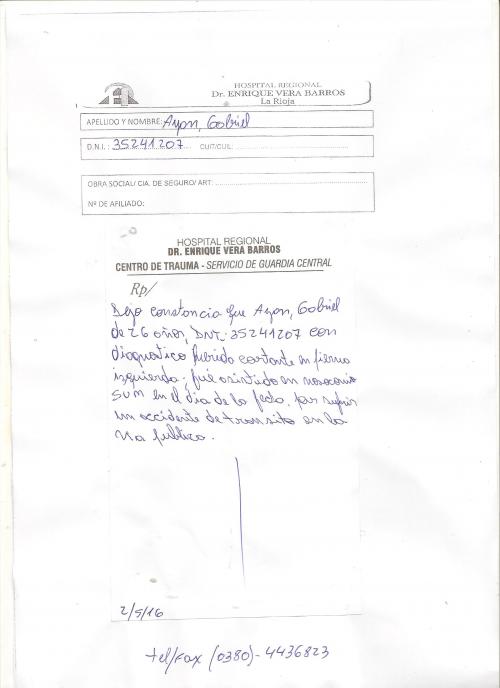 HOSPITAL REGIONAL
Dr. ENRIQUE VERA BARROS
La Rioja
APELLIDO Y NOMBRE: Ayon, Gabriel
D.N.I. : 35241207 CUIT/CUIL:
OBRA SOCIAL/ CIA. DE SEGURO/ ART:
Nº DE AFILIADO:
HOSPITAL REGIONAL
DR. ENRIQUE VERA BARROS
CENTRO DE TRAUMA - SERVICIO DE GUARDIA CENTRAL
Rp/
Dejo constancia que Ayon, Gabriel
de 26 años, DNI: 35241207 con
diagnostico herida cortante en pierna
izquierda, fué asistido en nosocomio
en el dia de la fecha, por sufrir
un accidente de transito en la
via publica.
2/5/16
tel/Fax (0380)-4436823